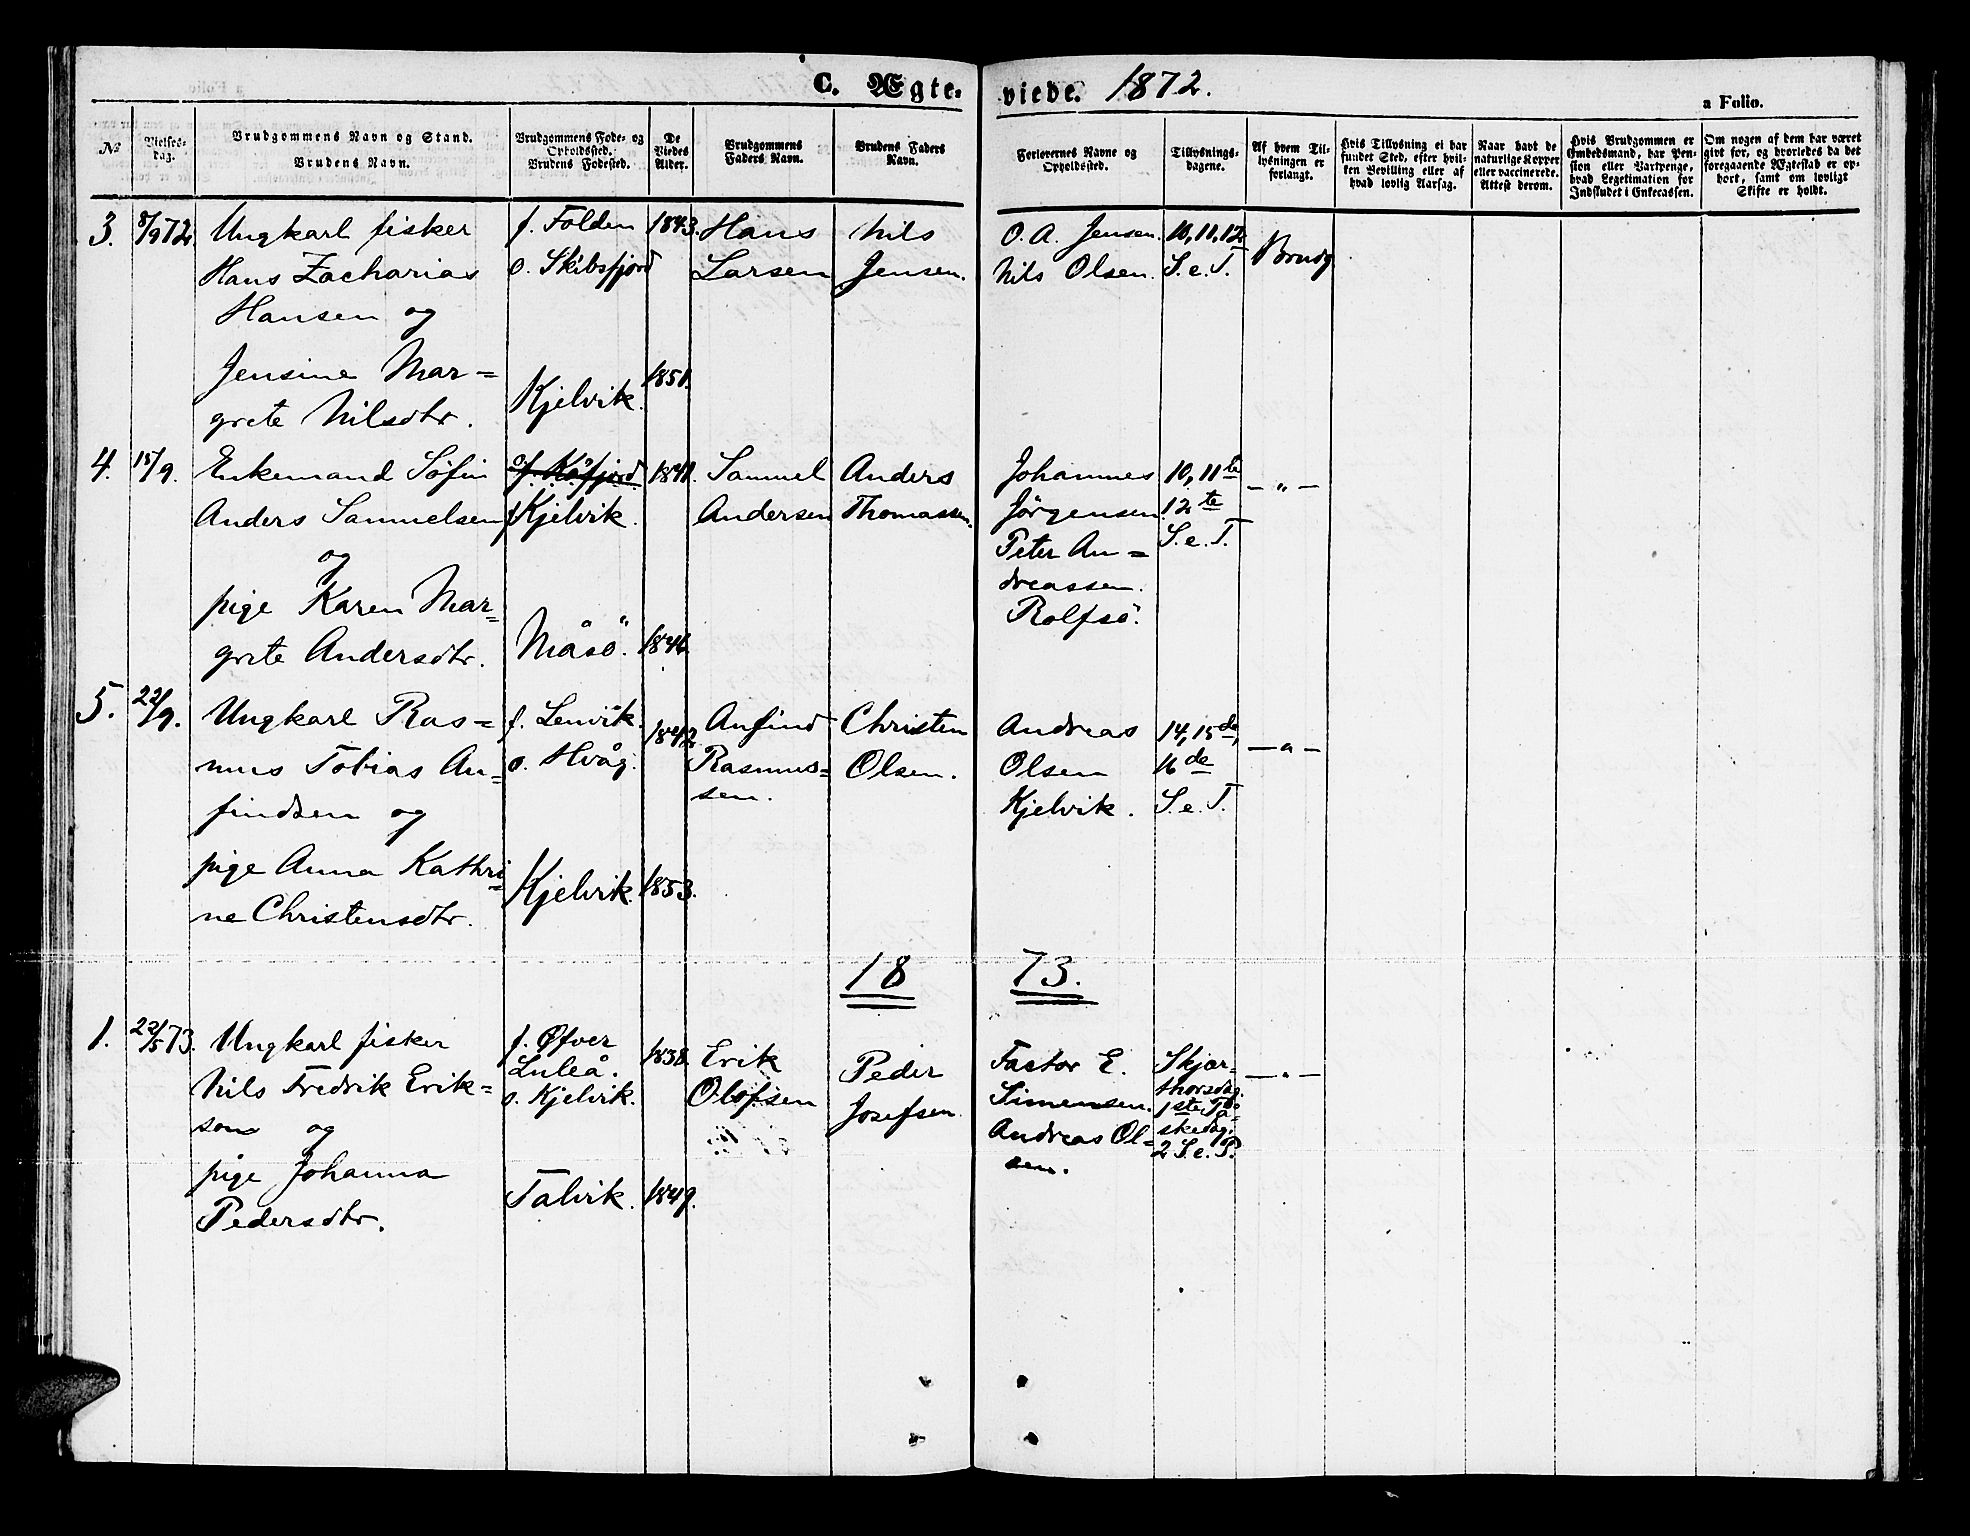 C. Ægte-
viede. 1872.
a Folio.
No
Vielses-
dag.
Brudgommens Navn og Stand.
Brudens Navn.
Brudgommens Føde- og
Opholdssted.
Brudens Fødested.
De
Viedes
Alder.
Brudgommens
Faders Navn.
Brudens Faders
Navn.
Forlovernes Navne og
Opholdssted.
Tillysnings-
dagene.
Af hvem Til-
lysningen er
forlangt.
Hvis Tillysning ei har
fundet Sted, efter hvil-
ken Bevilling eller af
hvad lovlig Aarsag.
Naar havt de
naturlige Kopper
eller vaccinerede.
Attest derom.
Hvis Brudgommen er
Embedsmand, har Pen-
sion eller Vartpenge,
hvad Legetimation for
Indskudet i Enkecassen.
Om nogen af dem har været
givt før, og hvorledes da det
foregaaende Ægteskab er op-
hørt, samt om lovligt
Skifte er holdt.
3.
8/9 72.
Ungkarl fisker
Hans Zacharias
Hansen og
Jensine Mar=
grete Nilsdtr.
f. Folden
o. Skibsfjord
Kjelvik.
1843.
1851.
Hans
Larsen
Nils
Jensen.
O. A. Jensen.
Nils Olsen.
10, 11, 12
S. e. T.
Brudg
4.
15/9.
Enkemand Søfin
Anders Samuelsen
og
pige Karen Mar=
grete Andersdtr.
of. Kåfjord.
f. Kjelvik.
Måsö.
1841.
1846
Samuel
Andersen
Anders
Thomassen.
Johannes
Jørgensen
Peter An=
dreassen.
Rolfsö.
10, 11te
12te
S. e. T.
— „ —
5.
22/9.
Ungkarl Ras=
mus Tobias An=
findsen og
pige Anna Kathri=
ne Christensdtr.
f. Lenvik.
o. Hvåg.
Kjelvik.
1842
1853.
Anfind
Rasmus=
sen.
Christen
Olsen.
Andreas
Olsen
Kjelvik.
14, 15de,
16de
S. e. T.
— „ —
18 73.
1.
22/5 73.
Ungkarl fisker
Nils Fredrik Erik=
son og
pige Johanna
Pedersdtr.
f. Øfver
Luleå.
o. Kjelvik.
Talvik.
1838.
1849.
Erik
Olofsen
Peder
Josefsen.
Factor E.
Simensen.
Andreas Ol=
sen.
Skjær-
thorsdag.
1ste På=
skedag.
2 S. e. P.
— „ —